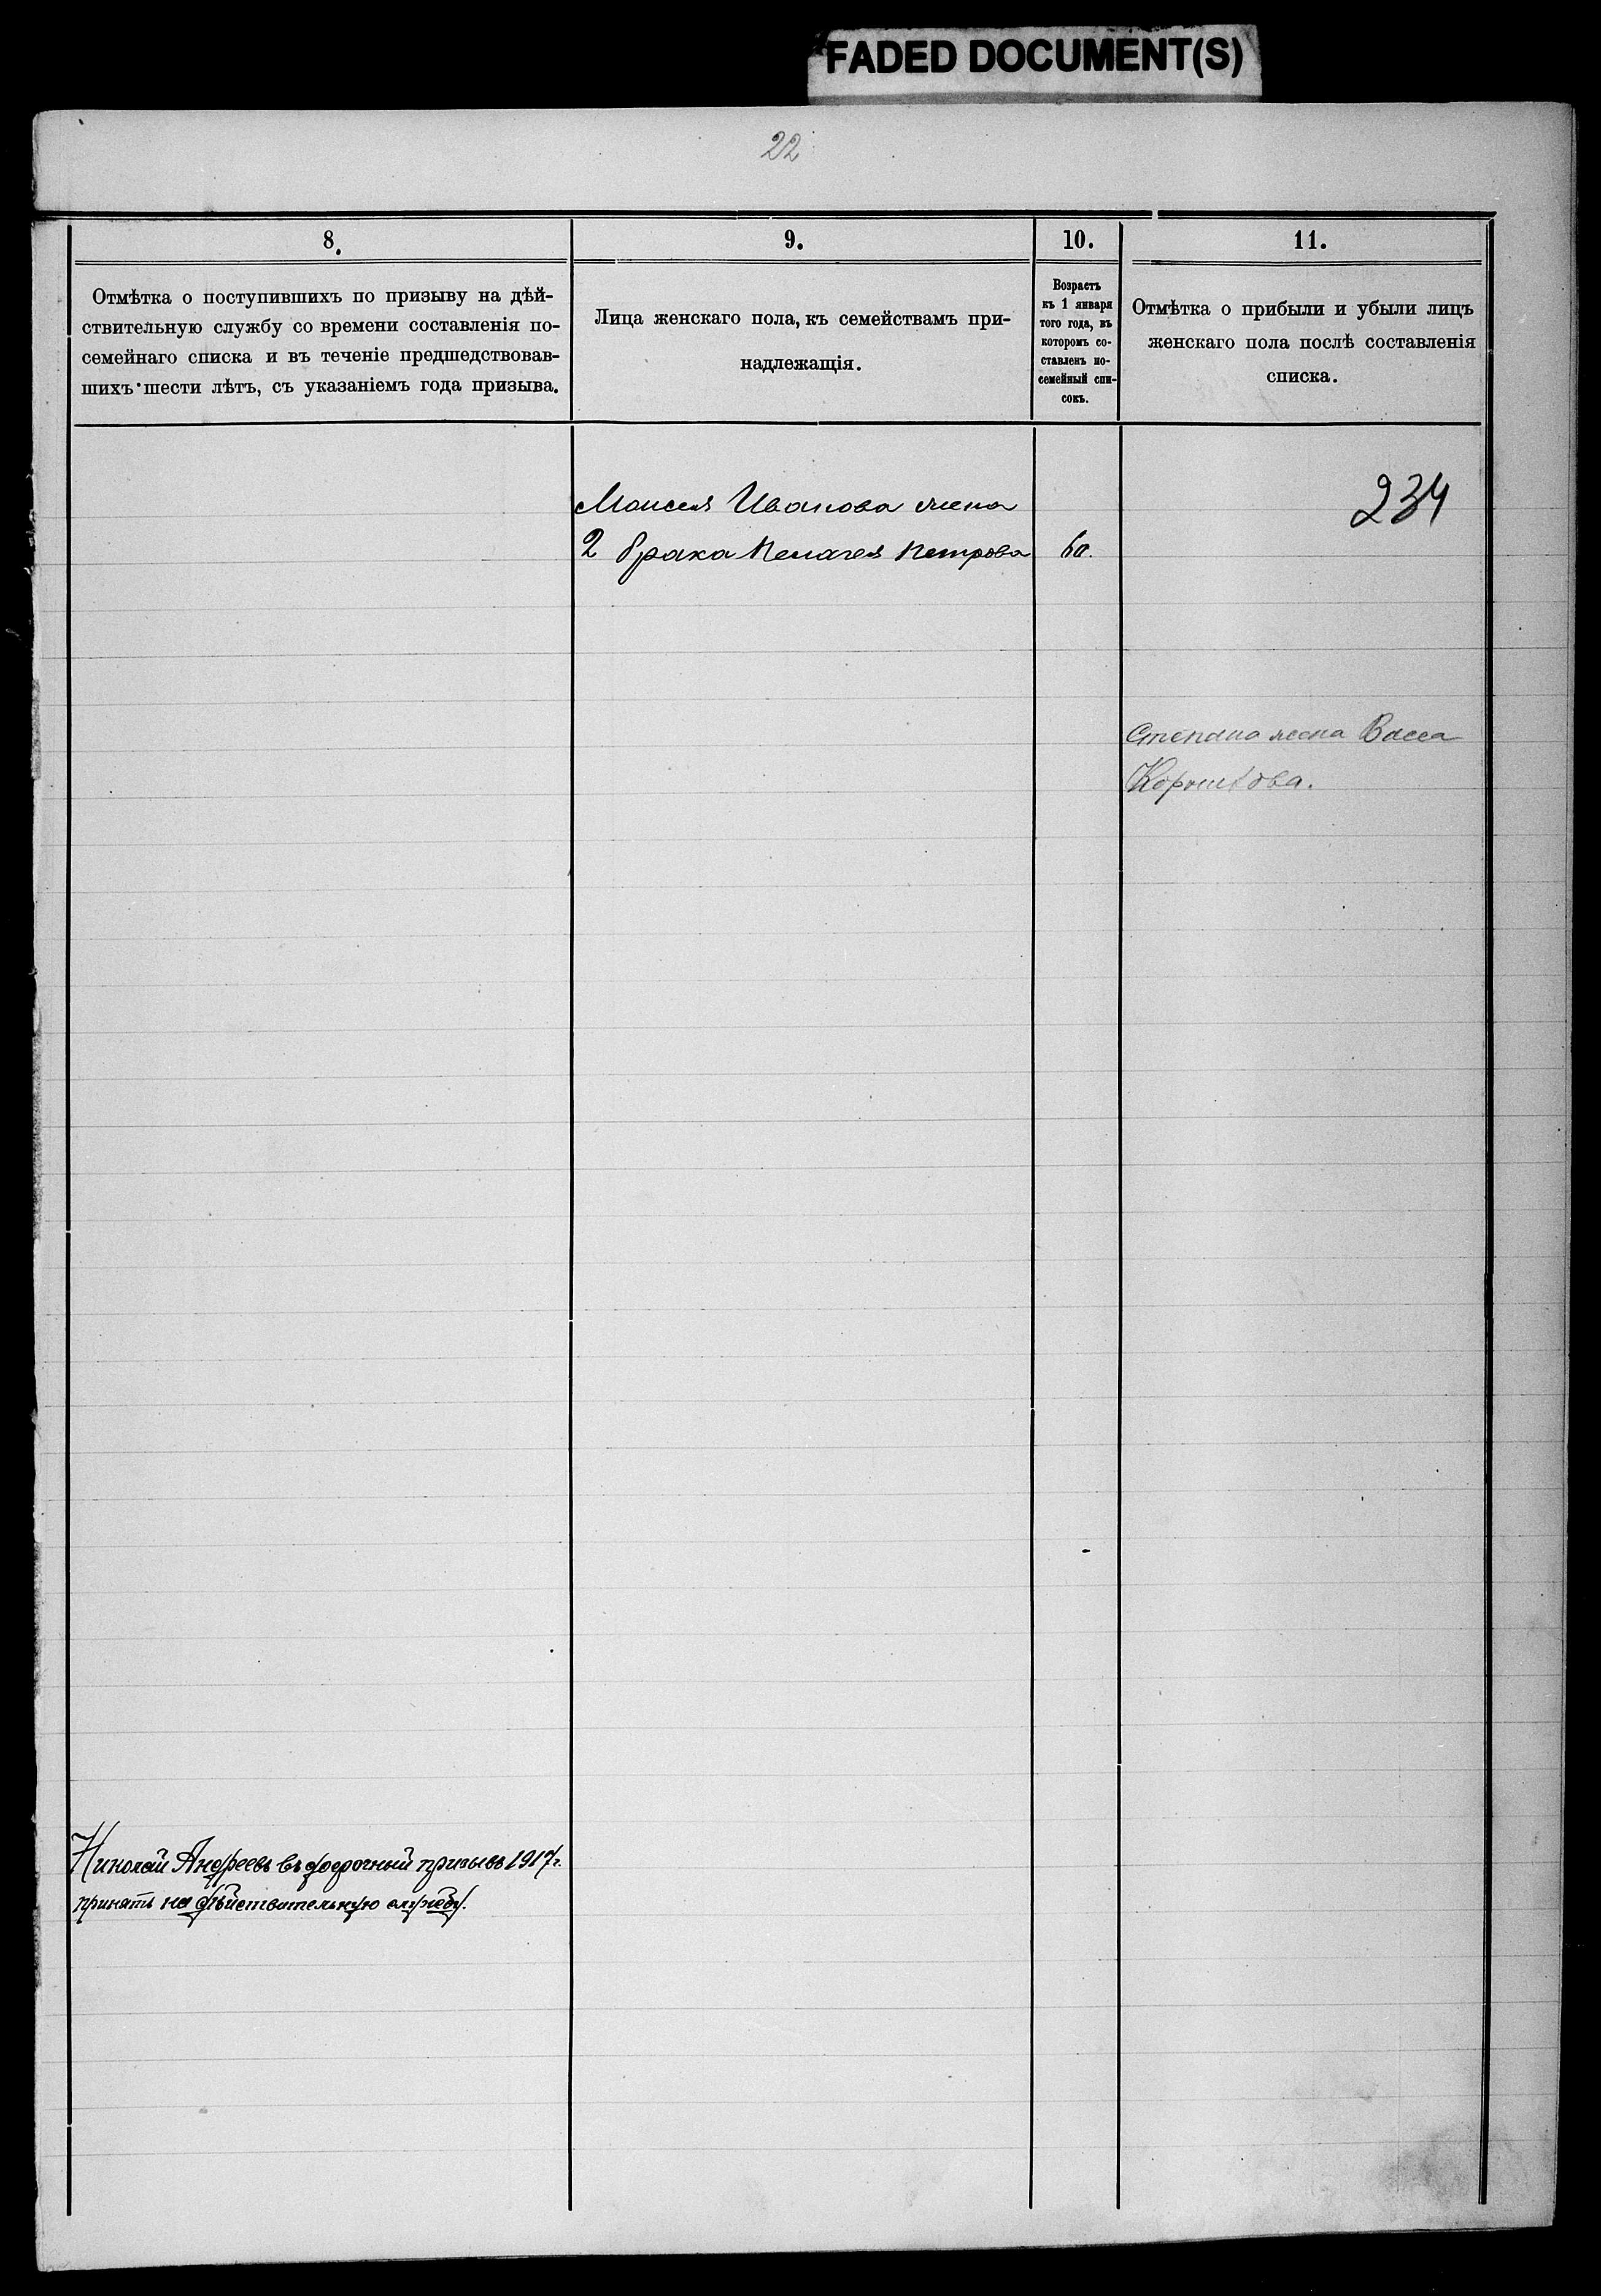 FADED DOCUMENT(S)
22
8.
Отмѣтка о поступившихъ по призыву на дѣй-
ствительную службу со времени составленія по-
семейнаго списка и въ теченіе предшедствовав-
шихъ шести лѣтъ, съ указаніемъ года призыва.
9.
Лица женскаго пола, къ семействамъ при-
надлежащія.
10.
Возрастъ
къ 1 января
того года, въ
которомъ со-
ставленъ по-
семейный спи-
сокъ.
11.
Отмѣтка о прибыли и убыли лицъ
женскаго пола послѣ составленія
списка.
234
Моисея Иванова жена
2 брака Пелагея Петрова 60.
Степана жена Васса
Николай Андреевъ въ досрочный призывъ 1917 г.
принятъ на дѣйствительную службу.